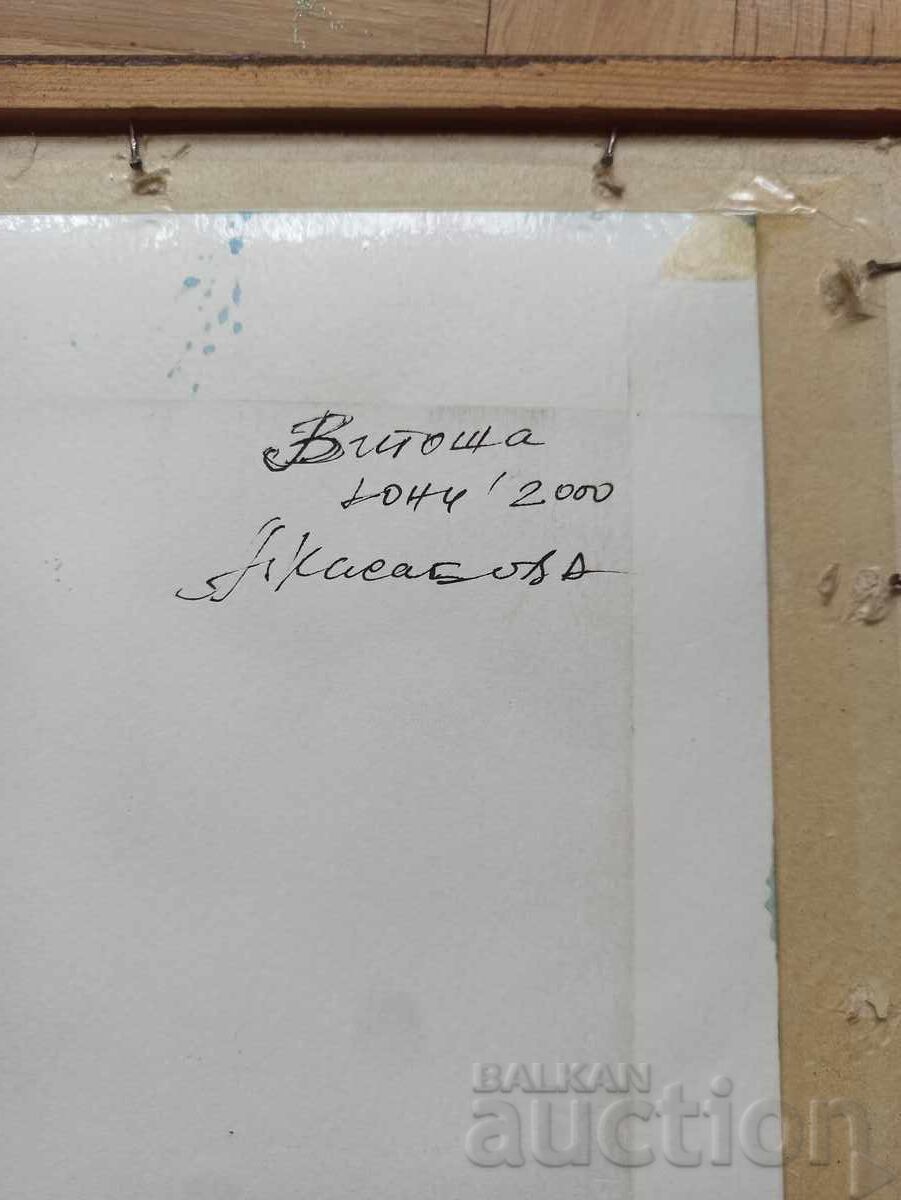 Витоша
юни '2000
Касабова
BALKAN
auction